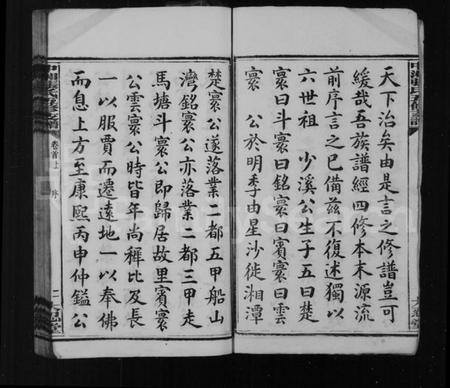 天下治矣由是言之修譜豈可
緩哉吾族譜經四修本末源流
前序言之已備茲不復述獨以
六世祖 少溪公生子五曰楚
寰曰斗寰曰銘寰曰賓寰曰雲
寰 公於明季由星沙徙湘潭
楚寰公遂落業一都五甲船山
灣銘寰公亦落業二都三甲走
馬塘斗寰公即歸居故里賓寰
公雲寰公時皆年尚穉比及長
一以服賈而遷遠地一以奉佛
而息上方至康熙丙申仲鎰公
卷首上
序
二